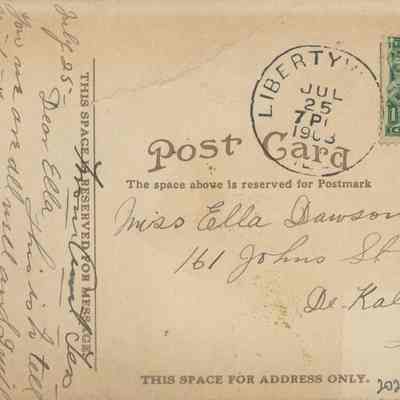 July 25-
Dear Ella
This is to tell
you we are all well and
THIS SPACE IS RESERVED FOR MESSAGE
LIBERTYV
JUL
25
7 PM
1908
Post Card
The space above is reserved for Postmark
Miss Ella Dawson
161 Johns St
De-Kal
THIS SPACE FOR ADDRESS ONLY.
202